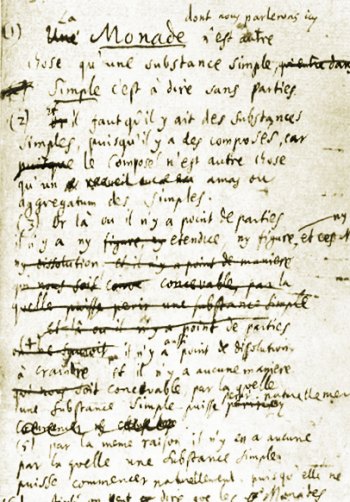 La dont nous parlerons icy
(1) Une Monade n'est autre
chose qu'une substance simple, qui entre dan
Simple c'est à dire sans parties
(2) Et il faut qu'il y ait des substances
simples, puisqu'il y a des composés, car
puisque le composé n'est autre chose
qu'un amas ou
aggregatum des simples.
(3) Or là ou il n'y a point de parties
il n'y a ny figure, ny etendue, ny figure, et ces
ny dissolution et il n'y a point de maniere
conçevable par la
quelle puisse perir une substance simple
Et là ou il n'y a point de parties
(4) il n'y a aussi point de dissolution
à craindre Et il n'y a aucune maniere
conçevable par la quelle
une substance simple puisse perir naturellemen
(5) par la meme raison il n'y en a aucune
par la quelle une substance simple
puisse commencer naturellement, puisqu'elle ne
on peut dire que les Monades